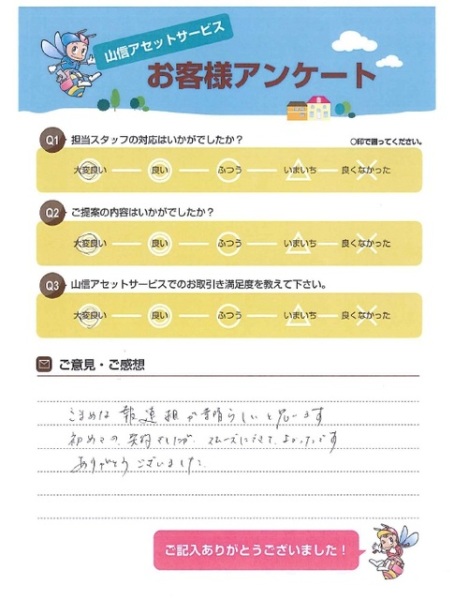 山信アセットサービス
お客様アンケート
Q1 担当スタッフの対応はいかがでしたか？
○印で囲ってください。
大変良い 良い ふつう いまいち 良くなかった
Q2 ご提案の内容はいかがでしたか？
大変良い 良い ふつう いまいち 良くなかった
Q3 山信アセットサービスでのお取引き満足度を教えて下さい。
大変良い 良い ふつう いまいち 良くなかった
ご意見・ご感想
こまめな 報連相が素晴らしいと思います
初めての 契約でしたが、スムーズにできて よかったです
ありがとうございました。
ご記入ありがとうございました！